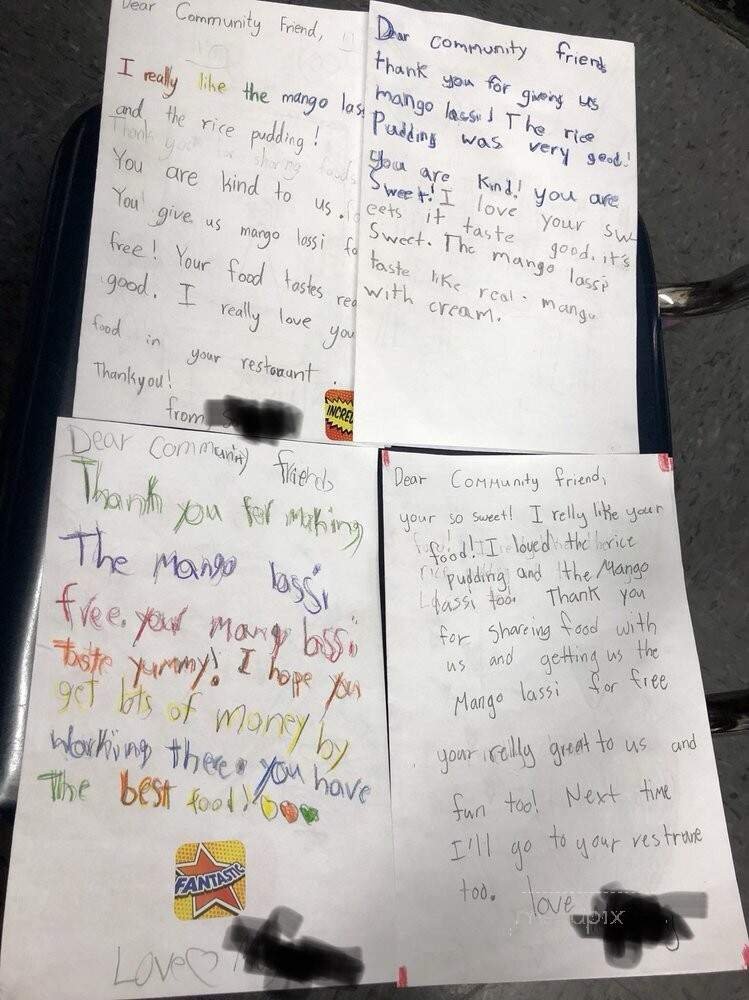 Dear Community Friend,
I really like the mango las
and the rice pudding!
Thank you for sharing foods
You are kind to us.
You give us mango lassi fo
free! Your food tastes rea
good. I really love you
food in your restoraunt.
Thankyou!
from,
INCREDI
Dear community friend
thank you for giveing us
mango lassi! The rice
Pudding was very good!
you are kind! you are
Sweet! I love your sw
eets it taste good. it's
Sweet. The mango lassi
taste like real. mango
with cream.
Dear Community friend
Thank you for making
The mango lassi
free. your mang lassi
taste yummy! I hope you
get lots of money by
working there. you have
The best food!
FANTASTIC
Love
Dear Community friend,
your so sweet! I relly like your
food! I loved the rice
pudding and the Mango
Lassi too. Thank you
for shareing food with
us and getting us the
Mango lassi for free
your relly great to us and
fun too! Next time
I'll go to your restrane
too. love